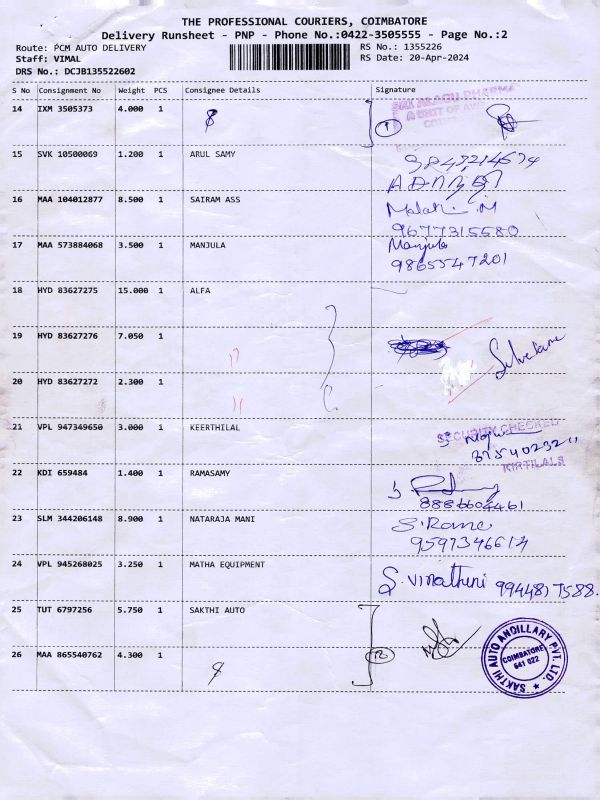 THE PROFESSIONAL COURIERS, COIMBATORE
Delivery Runsheet - PNP - Phone No.:0422-3505555 - Page No.:2
Route: PCM AUTO DELIVERY RS No.: 1355226
Staff: VIMAL RS Date: 20-Apr-2024
DRS No.: DCJB135522602
S No Consignment No Weight PCS Consignee Details Signature
14 IXM 3505373 4.000 1
SRI ARAGU PHARMA
15 SVK 10500069 1.200 1 ARUL SAMY
16 MAA 104012877 8.500 1 SAIRAM ASS
9677315580
17 MAA 573884068 3.500 1 MANJULA Manjula
9865547201
18 HYD 83627275 15.000 1 ALFA
19 HYD 83627276 7.050 1
20 HYD 83627272 2.300 1
21 VPL 947349650 3.000 1 KEERTHILAL SECURITY CHECKED
KIRTILALS
22 KDI 659484 1.400 1 RAMASAMY
8886604461
23 SLM 344206148 8.900 1 NATARAJA MANI S. Rame
24 VPL 945268025 3.250 1 MATHA EQUIPMENT
25 TUT 6797256 5.750 1 SAKTHI AUTO
26 MAA 865540762 4.300 1
SAKTHI AUTO ANCILLARY PVT. LTD.
COIMBATORE
641 022